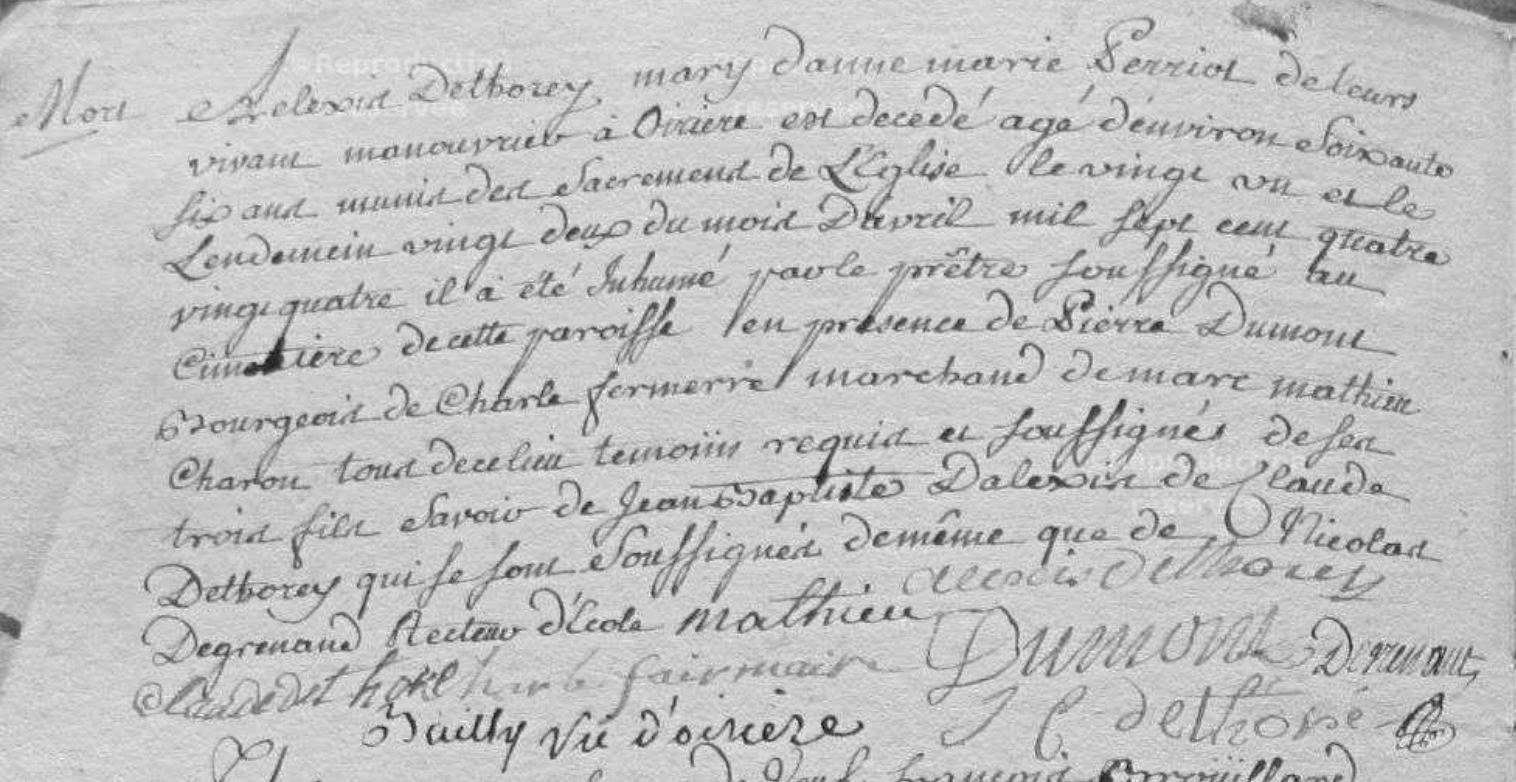 Mort Alexis Dethorey mary d'anne marie Perriot de leurs
vivant manouvrier à Oiriere est decedé agé d'environ Soixante
six ans munis des Sacremens de L'Eglise le vingt un et le
Lendemein vingt deux du mois Davril mil sept cent quatre
vingt quatre il a été Inhumé par le prêtre soussigné au
Cimetière de cette paroisse en presence de Pierre Dumont
Bourgeois de Charle fermerre marchand de marc mathieu
Charon tous de ce lieu temoins requis et soussignés de ses
trois fils Savoir de Jean Baptiste Dalexis de Claude
Dethorey qui se sont Soussignés de même que de Nicolas
Degrenand Recteur d'École mathieu alexis Dethorey
Claude dethoré Charle fairmaire Dumont
Bailly Vic d'oiriere J C dethoré
de françois